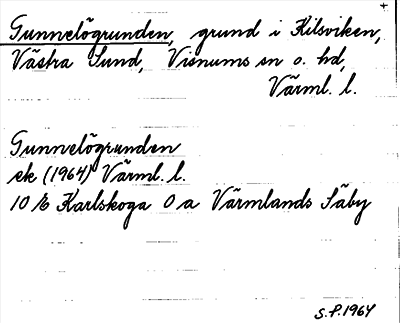 +
Gunnelögrunden, grund i Kilsviken,
Västra Sund, Visnums sn o. hd,
Värml. l.
Gunnelögrunden
ek (1964) Värml. l.
10 E Karlskoga 0 a Värmlands Säby
S.P. 1964